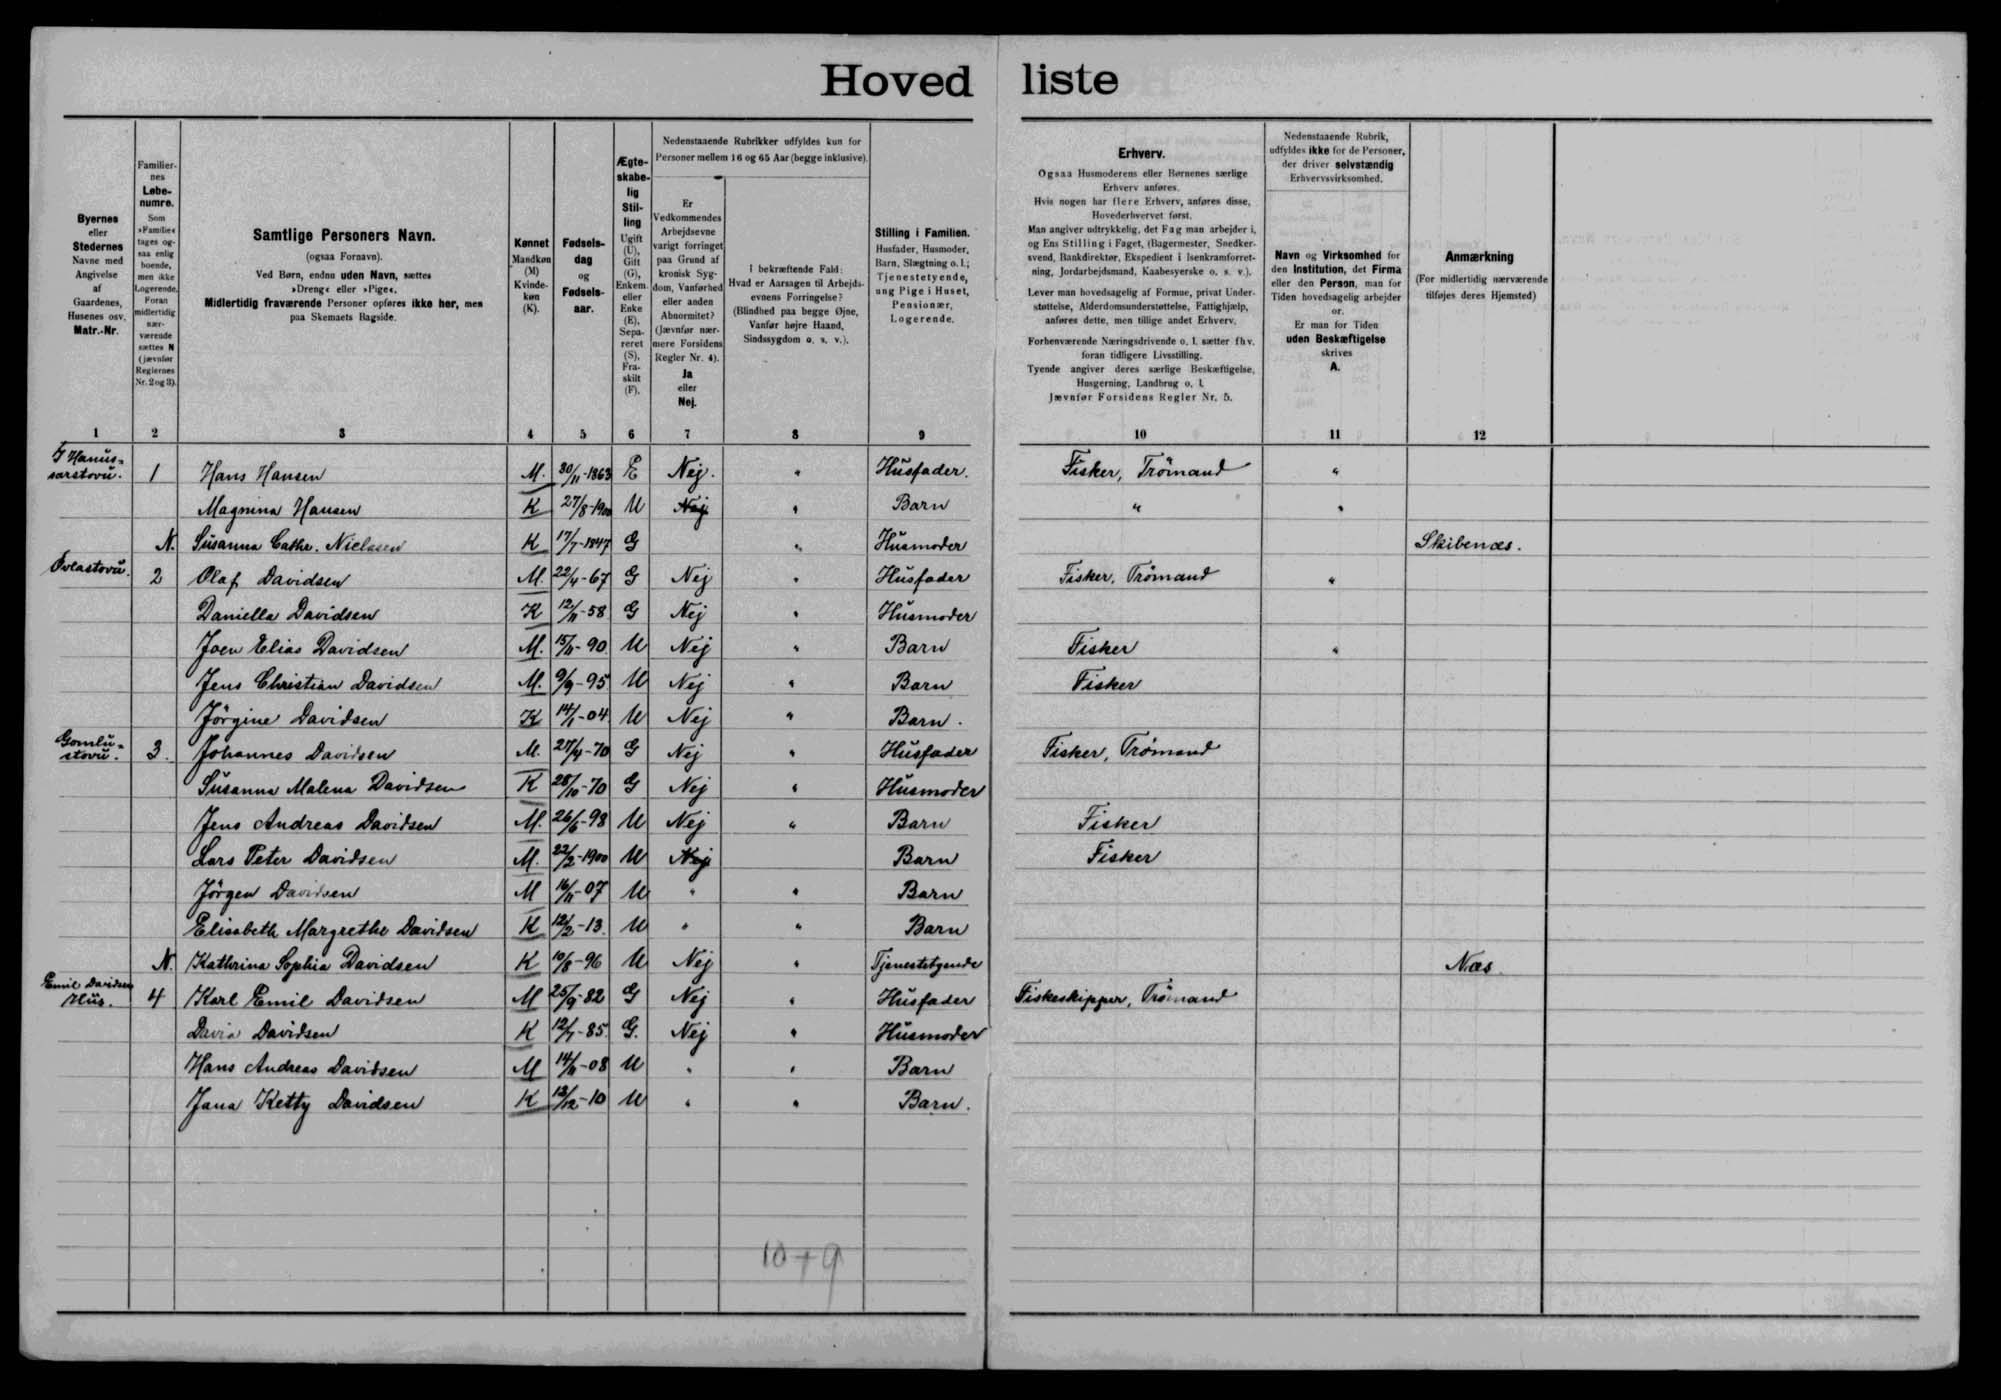 Hoved liste
Byernes
eller
Stedernes
Navne med
Angivelse
af
Gaardenes,
Husenes osv.
Matr.-Nr.
Familier-
nes
Løbe-
numre.
Som
»Familie«
tages og-
saa enlig
boende,
men ikke
Logerende.
Foran
midlertidig
nær-
værende
sættes N
(jævnfør
Reglernes
Nr. 2 og 3).
Samtlige Personers Navn.
(ogsaa Fornavn).
Ved Børn, endnu uden Navn, sættes
»Dreng« eller »Pige«.
Midlertidig fraværende Personer opføres ikke her, men
paa Skemaets Bagside.
Kønnet
Mandkøn
(M)
Kvinde-
køn
(K).
Fødsels-
dag
og
Fødsels-
aar.
Ægte-
skabe-
lig
Stil-
ling
Ugift
(U),
Gift
(G),
Enkem.
eller
Enke
(E),
Sepa-
reret
(S),
Fra-
skilt
(F).
Nedenstaaende Rubrikker udfyldes kun for
Personer mellem 16 og 65 Aar (begge inklusive).
Er
Vedkommendes
Arbejdsevne
varigt forringet
paa Grund af
kronisk Syg-
dom, Vanførhed
eller anden
Abnormitet?
(Jævnfør nær-
mere Forsidens
Regler Nr. 4).
Ja
eller
Nej.
I bekræftende Fald:
Hvad er Aarsagen til Arbejds-
evnens Forringelse?
(Blindhed paa begge Øjne,
Vanfør højre Haand,
Sindssygdom o. s. v.).
Stilling i Familien.
Husfader, Husmoder,
Barn, Slægtning o. l.;
Tjenestetyende,
ung Pige i Huset,
Pensionær,
Logerende.
Erhverv.
Ogsaa Husmoderens eller Børnenes særlige
Erhverv anføres.
Hvis nogen har flere Erhverv, anføres disse,
Hovederhvervet først.
Man angiver udtrykkelig, det Fag man arbejder i,
og Ens Stilling i Faget, (Bagermester, Snedker-
svend, Bankdirektør, Ekspedient i Isenkramforret-
ning, Jordarbejdsmand, Kaabesyerske o. s. v.).
Lever man hovedsagelig af Formue, privat Under-
støttelse, Alderdomsunderstøttelse, Fattighjælp,
anføres dette, men tillige andet Erhverv.
Forhenværende Næringsdrivende o. l. sætter fhv.
foran tidligere Livsstilling.
Tyende angiver deres særlige Beskæftigelse,
Husgerning, Landbrug o. l.
Jævnfør Forsidens Regler Nr. 5.
Nedenstaaende Rubrik,
udfyldes ikke for de Personer,
der driver selvstændig
Erhvervsvirksomhed.
Navn og Virksomhed for
den Institution, det Firma
eller den Person, man for
Tiden hovedsagelig arbejder
for.
Er man for Tiden
uden Beskæftigelse
skrives
A.
Anmærkning
(For midlertidig nærværende
tilføjes deres Hjemsted)
1 2 3 4 5 6 7 8 9 10 11 12
I Hanus=
sarstovu. 1 Hans Hansen M. 30/11-1863 E Nej. " Husfader. Fisker, Trömand "
Magnina Hansen K 27/8-1900 U Nej " Barn " "
N. Susanna Cathr. Nielasen K 17/7-1847 G " Husmoder Skibenæs.
Ovlastovu. 2 Olaf Davidsen M. 22/4-67 G Nej " Husfader Fisker, Trömand "
Daniella Davidsen K 12/11-58 G Nej " Husmoder
Joen Elias Davidsen M. 15/11-90 U Nej " Barn Fisker "
Jens Christian Davidsen M. 9/9-95 U Nej " Barn Fisker
Jörgine Davidsen K 14/1-04 U Nej " Barn.
Gomlu=
stovu. 3. Johannes Davidsen M. 27/4-70 G Nej " Husfader Fisker, Trömand
Susanna Malena Davidsen K 28/10-70 G Nej " Husmoder
Jens Andreas Davidsen M. 26/6-98 U Nej " Barn Fisker
Lars Peter Davidsen M. 22/2-1900 U Nej Barn Fisker
Jörgen Davidsen M 16/11-07 U " " Barn
Elisabeth Margrethe Davidsen K 12/2-13. U " " Barn
N. Kathrina Sophia Davidsen K 10/8-96 U Nej " Tjenestetyende Næs.
Emil Davidsen
Hús. 4 Karl Emil Davidsen M 25/9-82 G Nej " Husfader Fiskeskipper, Trömand
Davia Davidsen K 12/1-85. G. Nej " Husmoder
Hans Andreas Davidsen M 14/6-08 U " " Barn
Jana Ketty Davidsen K 13/12-10 U " " Barn.
10+9